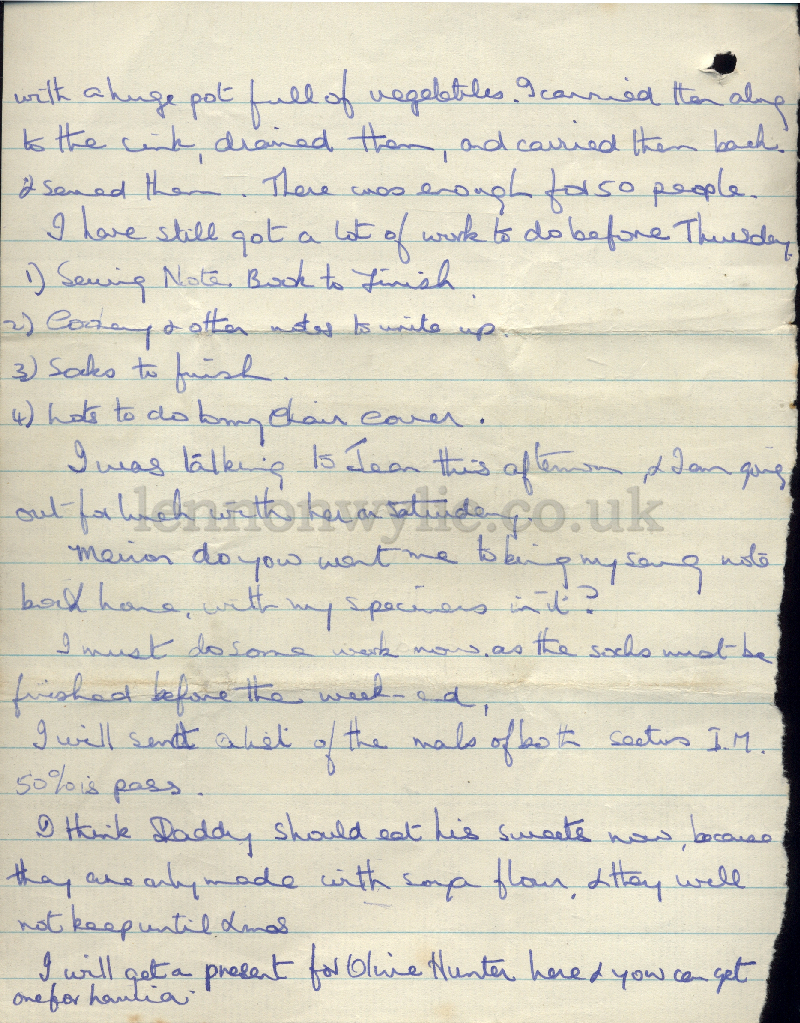 with a huge pot full of vegetables. I carried them along
to the sink, drained them, and carried them back.
& served them. There was enough for 50 people.
I have still got a lot of work to do before Thursday.
1) Sewing Note Book to Finish
2) Cookery & other notes to write up.
3) Socks to finish.
4) Lots to do to my chair cover.
I was talking to Jean this afternoon, & I am going
out for lunch with her on Saturday.
lennonwylie.co.uk
do you want me to bring my sewing note
book home, with my specimens in it?
I must do some work now, as the socks must be
finished before the week-end,
I will send a list of the marks of both sections I.M.
50% is pass.
I think Daddy should eat his sweets now, because
they are only made with soya flour, & they will
not keep until Xmas
I will get a present for Olive Hunter here & you can get
one for